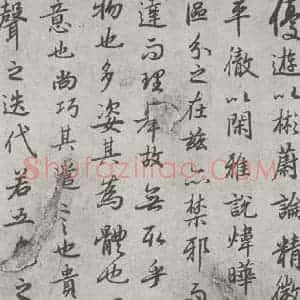 優遊以彬蔚論精微
平徹以閑雅說煒曄
區分之在茲亦禁邪而
達而理舉故無取乎
物也多姿其為體也
意也尚巧其遣言也貴
聲之迭代若五色之
Shufaziliao.COM